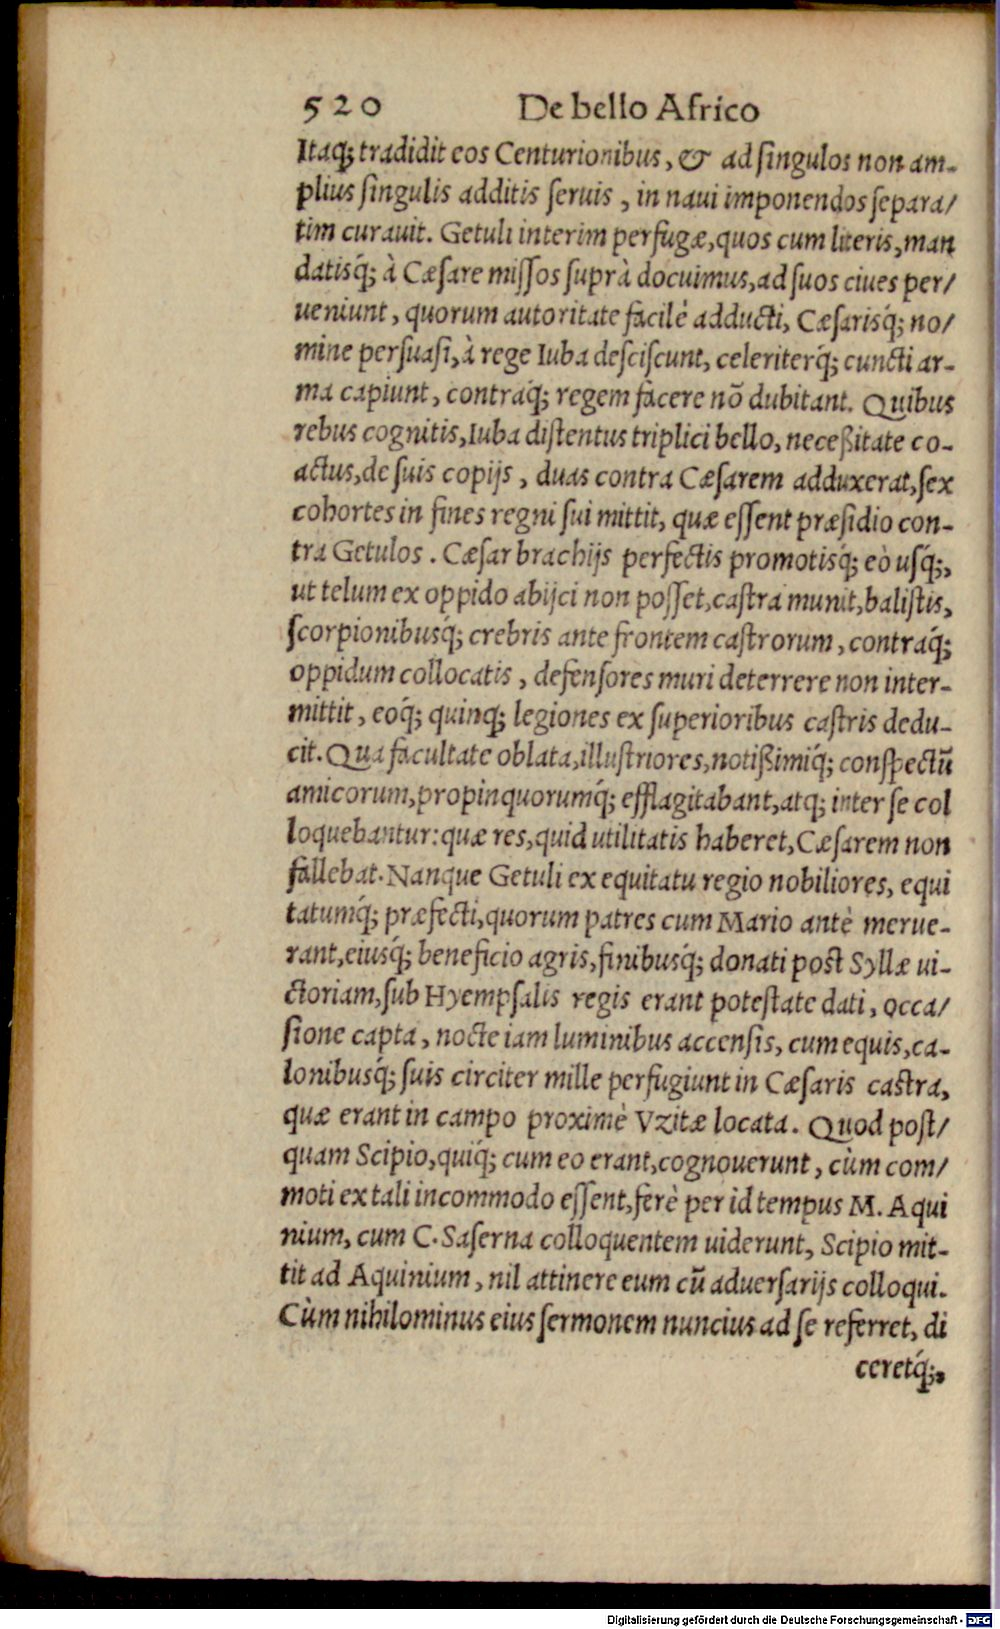 520 De bello Africo
Itaq; tradidit eos Centurionibus, & ad ſingulos non am-
plius ſingulis additis ſeruis, in naui imponendos ſepara/
tim curauit. Getuli interim perfugæ, quos cum literis, man
datisq́; à Cæſare miſſos ſuprà docuimus, ad ſuos ciues per/
ueniunt, quorum autoritate facilè adducti, Cæſarisq́; no/
mine perſuaſi, à rege Iuba deſciſcunt, celeriterq́; cuncti ar-
ma capiunt, contraq́; regem facere nõ dubitant. Quibus
rebus cognitis, Iuba diſtentus triplici bello, neceßitate co-
actus, de ſuis copijs, duas contra Cæſarem adduxerat, ſex
cohortes in fines regni ſui mittit, quæ eſſent præſidio con-
tra Getulos. Cæſar brachijs perfectis promotisq́; eò uſq́;,
ut telum ex oppido abijci non poſſet, caſtra munit, baliſtis,
ſcorpionibusq́; crebris ante frontem caſtrorum, contraq́;
oppidum collocatis, defenſores muri deterrere non inter-
mittit, eoq́; quinq; legiones ex ſuperioribus caſtris dedu-
cit. Qua facultate oblata, illuſtriores, notißimiq́; conſpectũ
amicorum, propinquorumq́; efflagitabant, atq; inter ſe col
loquebantur: quæ res, quid utilitatis haberet, Cæſarem non
fallebat. Nanque Getuli ex equitatu regio nobiliores, equi
tatumq́; præfecti, quorum patres cum Mario antè merue-
rant, eiusq́; beneficio agris, finibusq́; donati poſt Syllæ ui-
ctoriam, ſub Hyempſalis regis erant poteſtate dati, occa/
ſione capta, nocte iam luminibus accenſis, cum equis, ca-
lonibusq́; ſuis circiter mille perfugiunt in Cæſaris caſtra,
quæ erant in campo proximè Vzitæ locata. Quod poſt/
quam Scipio, quiq́; cum eo erant, cognouerunt, cùm com/
moti ex tali incommodo eſſent, ferè per id tempus M. Aqui
nium, cum C. Saſerna colloquentem uiderunt, Scipio mit-
tit ad Aquinium, nil attinere eum cũ aduerſarijs colloqui.
Cùm nihilominus eius ſermonem nuncius ad ſe referret, di
ceretq́;,
Digitalisierung gefördert durch die Deutsche Forschungsgemeinschaft - DFG